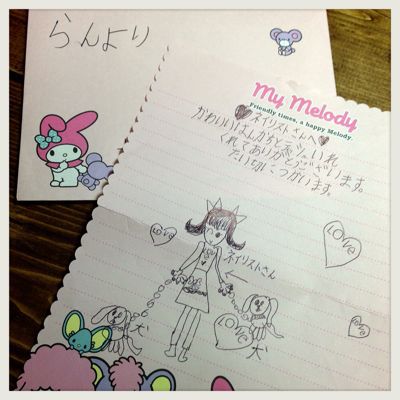 らんより
My Melody
Friendly times, a happy Melody.
ネイリストさんへ
かわいいはんかちとポシェいれ
くれてありがとうございます。
たい切につかいます。
LOVE
ネイリストさん
LOVE
LOVE
LOVE
犬
犬